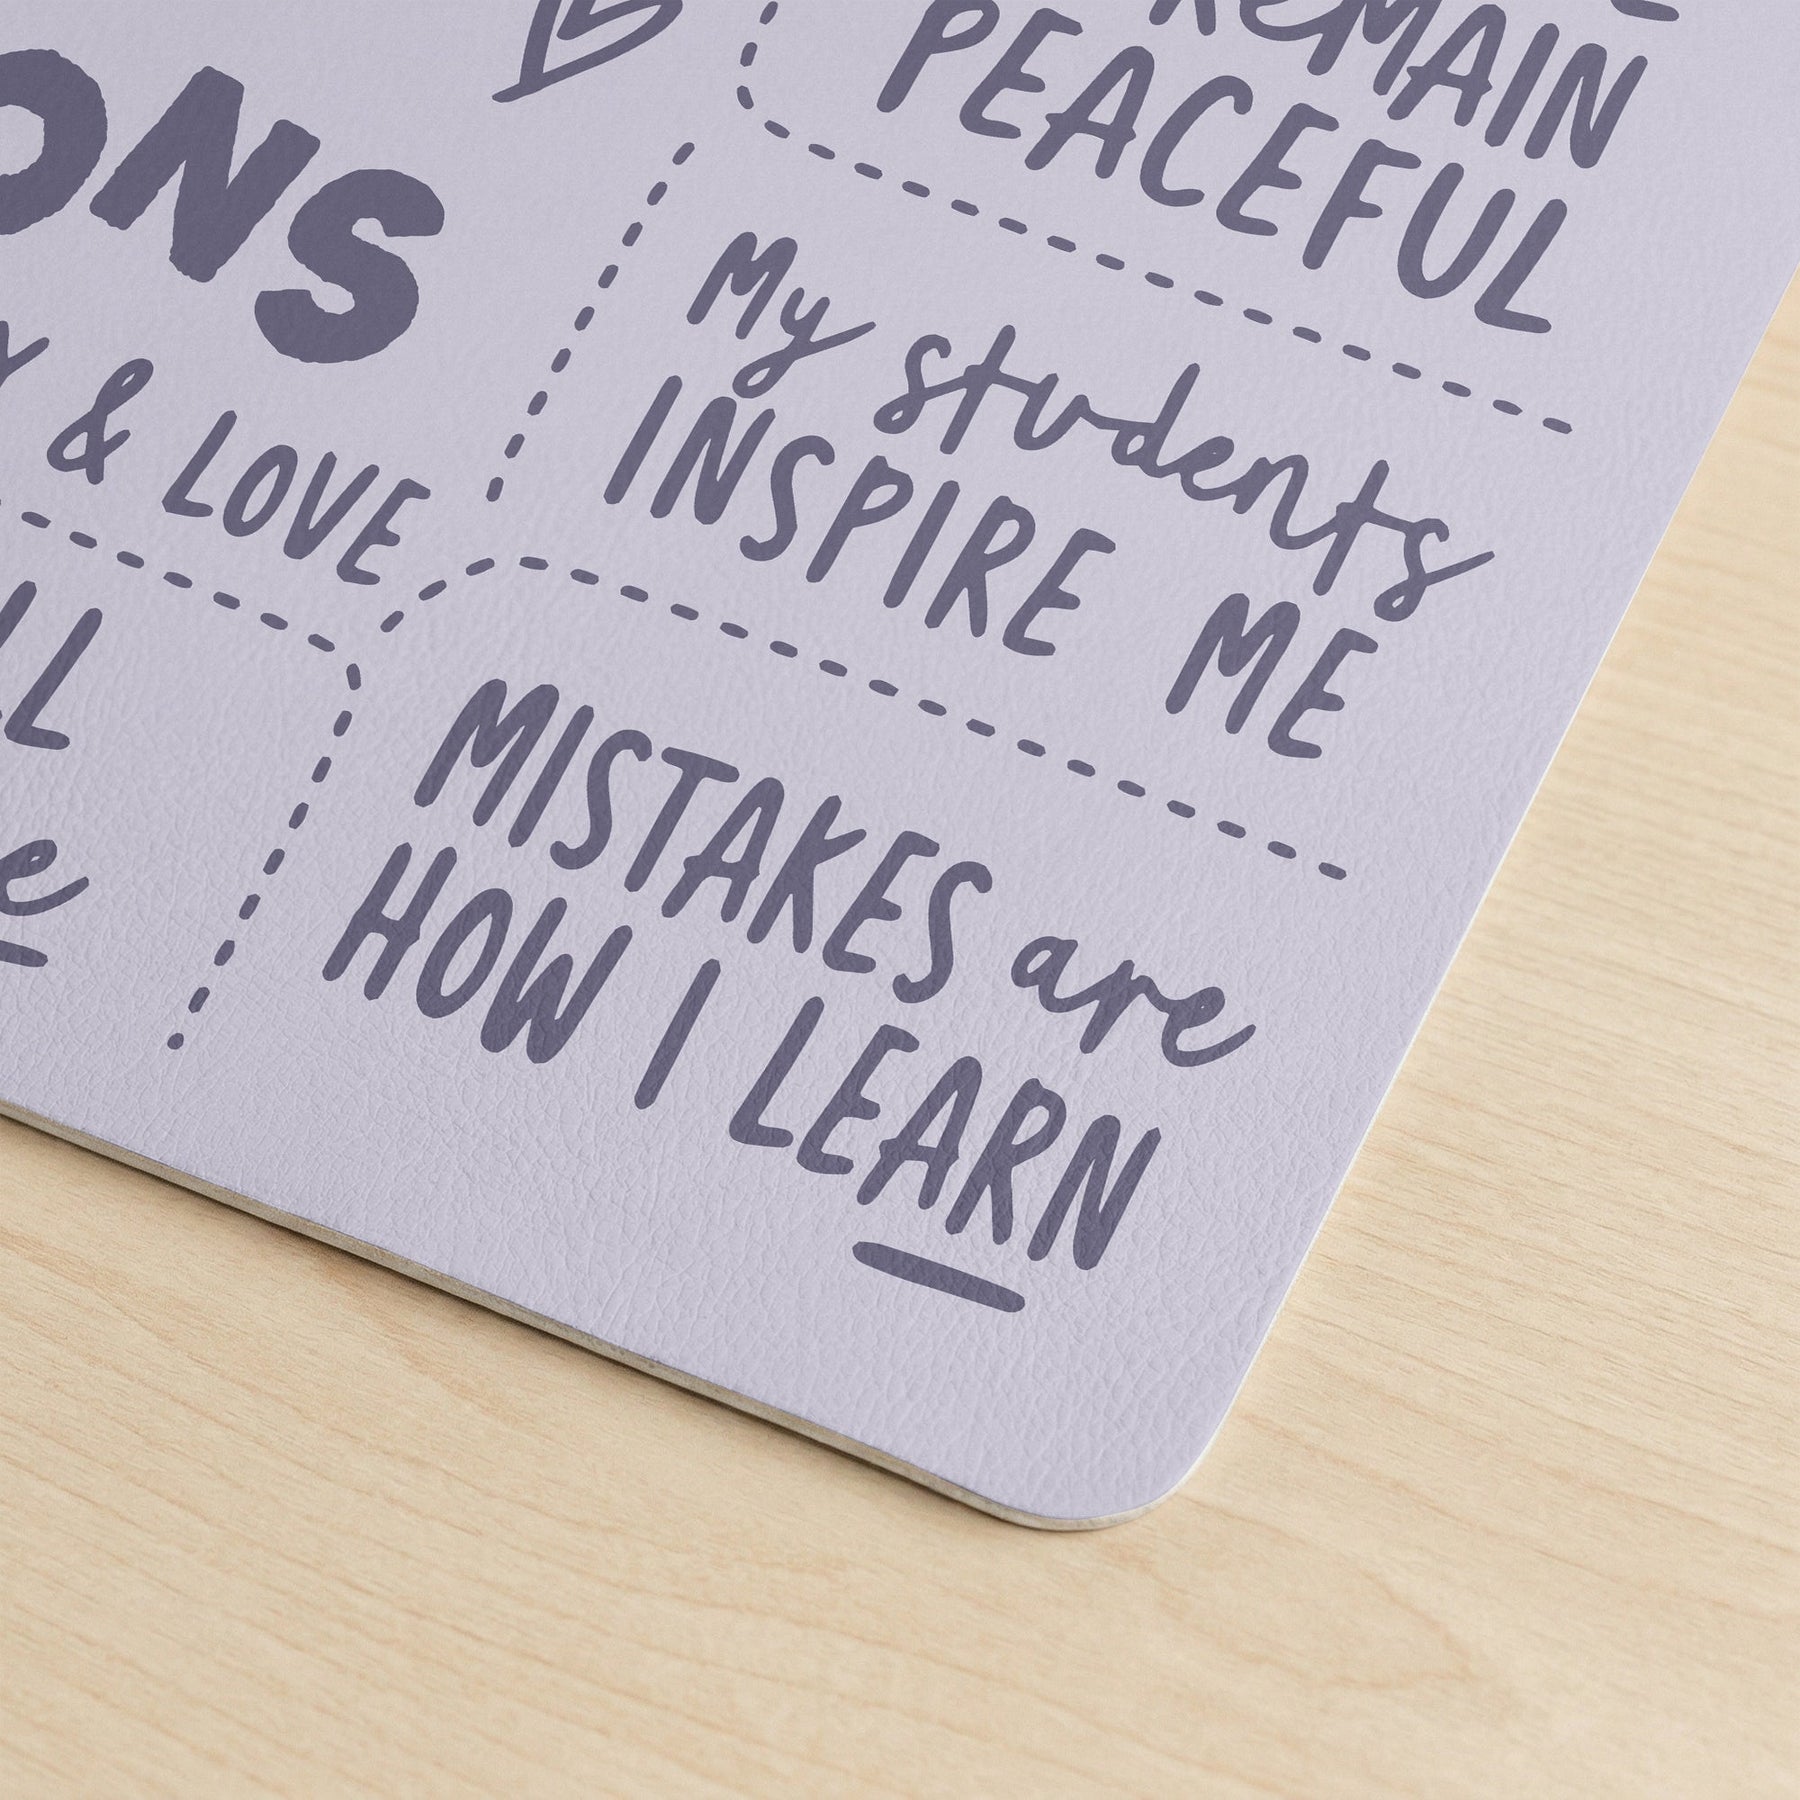 REMAIN
PEACEFUL
ONS
& LOVE
My students
INSPIRE ME
MISTAKES are
HOW I LEARN